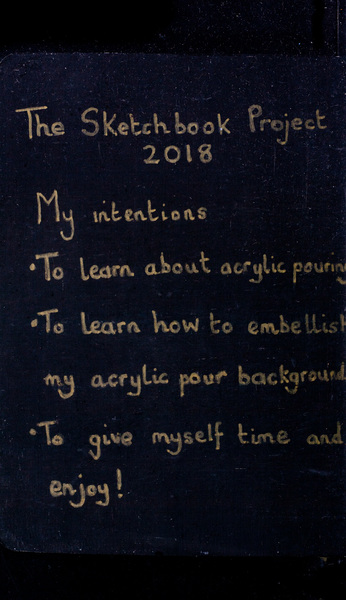 The Sketchbook Project
2018
My intentions
• To learn about acrylic pouring
• To learn how to embellish
my acrylic pour background
• To give myself time and
enjoy!